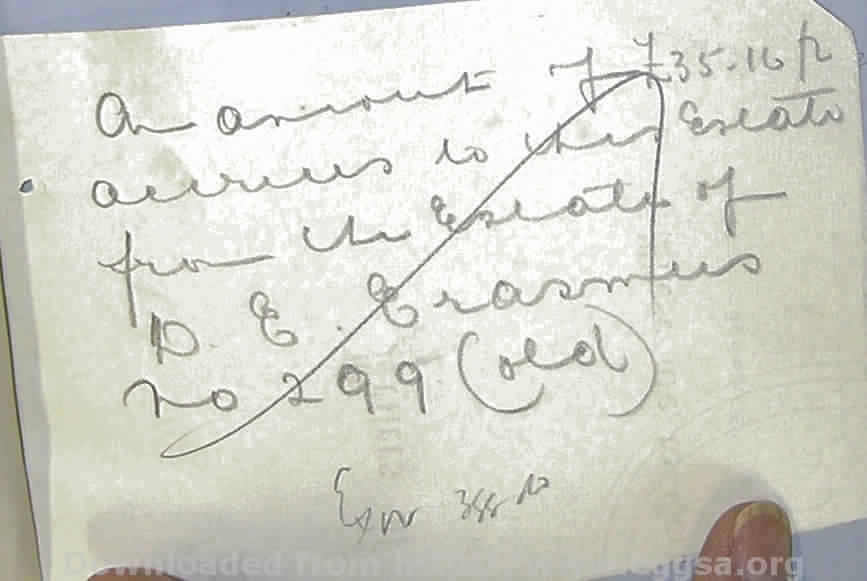 An amount of £35.16/2
accrues to this Estate
from the Estate of
D. E. Erasmus
no 299 (old)
Downloaded from eggsa.org